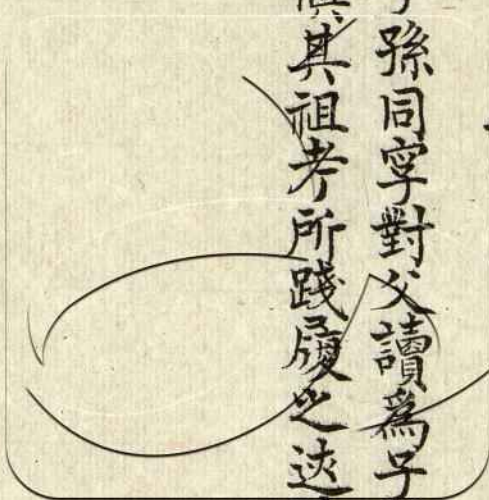 孫同字對父讀爲子
其祖考所踐履之迹